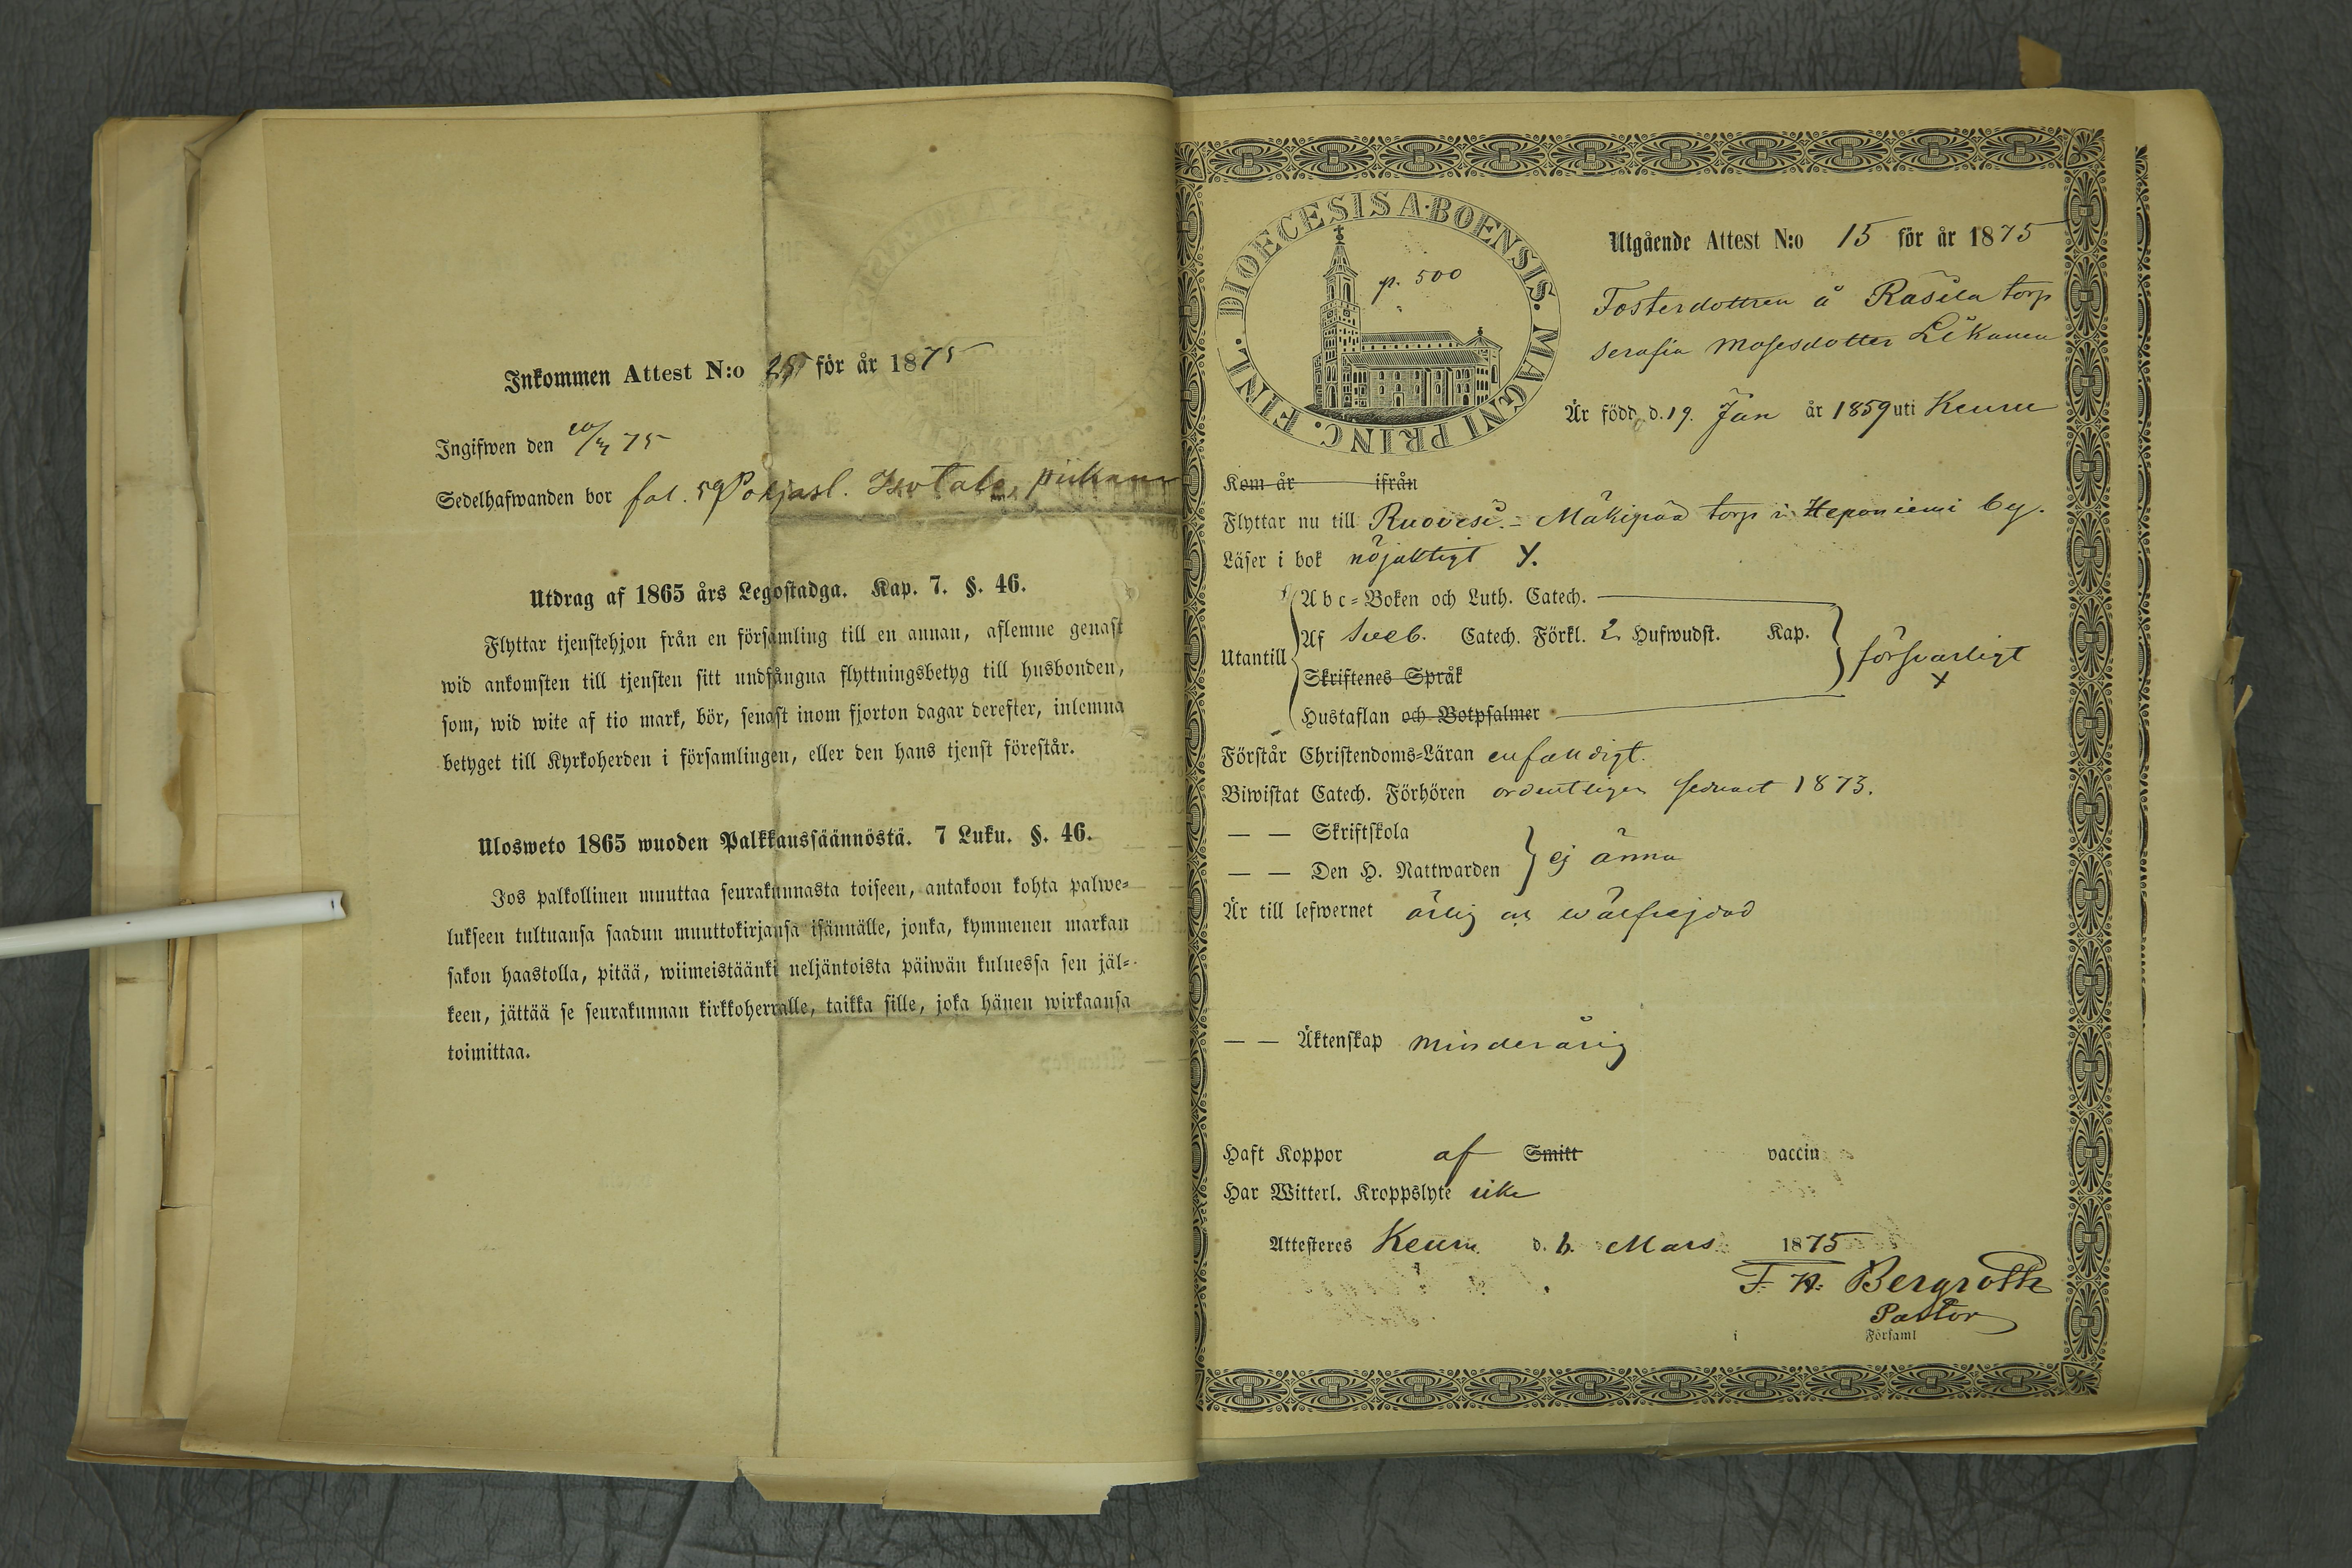 Inkommen Attest N:o 25 för år 1875
Ingifwen den 20/3 75
Sedelhafwanden bor fol. 59 Pohjasl. Isotalo, piikana
Utdrag af 1865 års Legostadga. Kap. 7. §. 46.
Flyttar tjenstehjon från en församling till en annan, aflemne genast
wid ankomsten till tjensten sitt undfångna flyttningsbetyg till husbonden,
som, wid wite af tio mark, bör, senast inom fjorton dagar derefter, inlemna
betyget till Kyrkoherden i församlingen, eller den hans tjenst förestår.
Ulosweto 1865 wuoden Palkkaussäännöstä. 7 Luku. §. 46.
Jos palkollinen muuttaa seurakunnasta toiseen, antakoon kohta palwe-
lukseen tultuansa saadun muuttokirjansa isännälle, jonka, kymmenen markan
sakon haastolla, pitää, wiimeistäänki neljäntoista päiwän kuluessa sen jäl-
keen, jättää se seurakunnan kirkkoherralle, taikka sille, joka hänen wirkaansa
toimittaa.
DIOECESIS ABOENSIS. MAGNI PRINC. FINL.
p. 500
Utgående Attest N:o 15 för år 1875
Fosterdottren å Rasila torp
Serafia Mosesdotter Likanen
Är född d. 19. Jan år 1859 uti Keuru
Kom år ifrån
Flyttar nu till Ruovesi. - Mäkipää torp i Heponiemi by.
Läser i bok nöjaktigt Y.
Utantill
Abc-Boken och Luth. Catech.
Af Sveb. Catech. Förkl. 2 Hufwudst. Kap.
Skriftenes Språk
Hustaflan och Botpsalmer
försvarligt
x
Förstår Christendoms-Läran enfaldigt.
Biwistat Catech. Förhören ordentligen sednast 1873.
— — Skriftskola
— — Den H. Nattwarden
ej ännu
Är till lefwernet ärlig och wälfrejdad
— — Äktenskap minderårig
Haft Koppor af Smitt vaccin
Har Witterl. Kroppslyte icke
Attesteres Keuru d. 6. Mars 1875
F. W. Bergroth
Pastor
i Församl